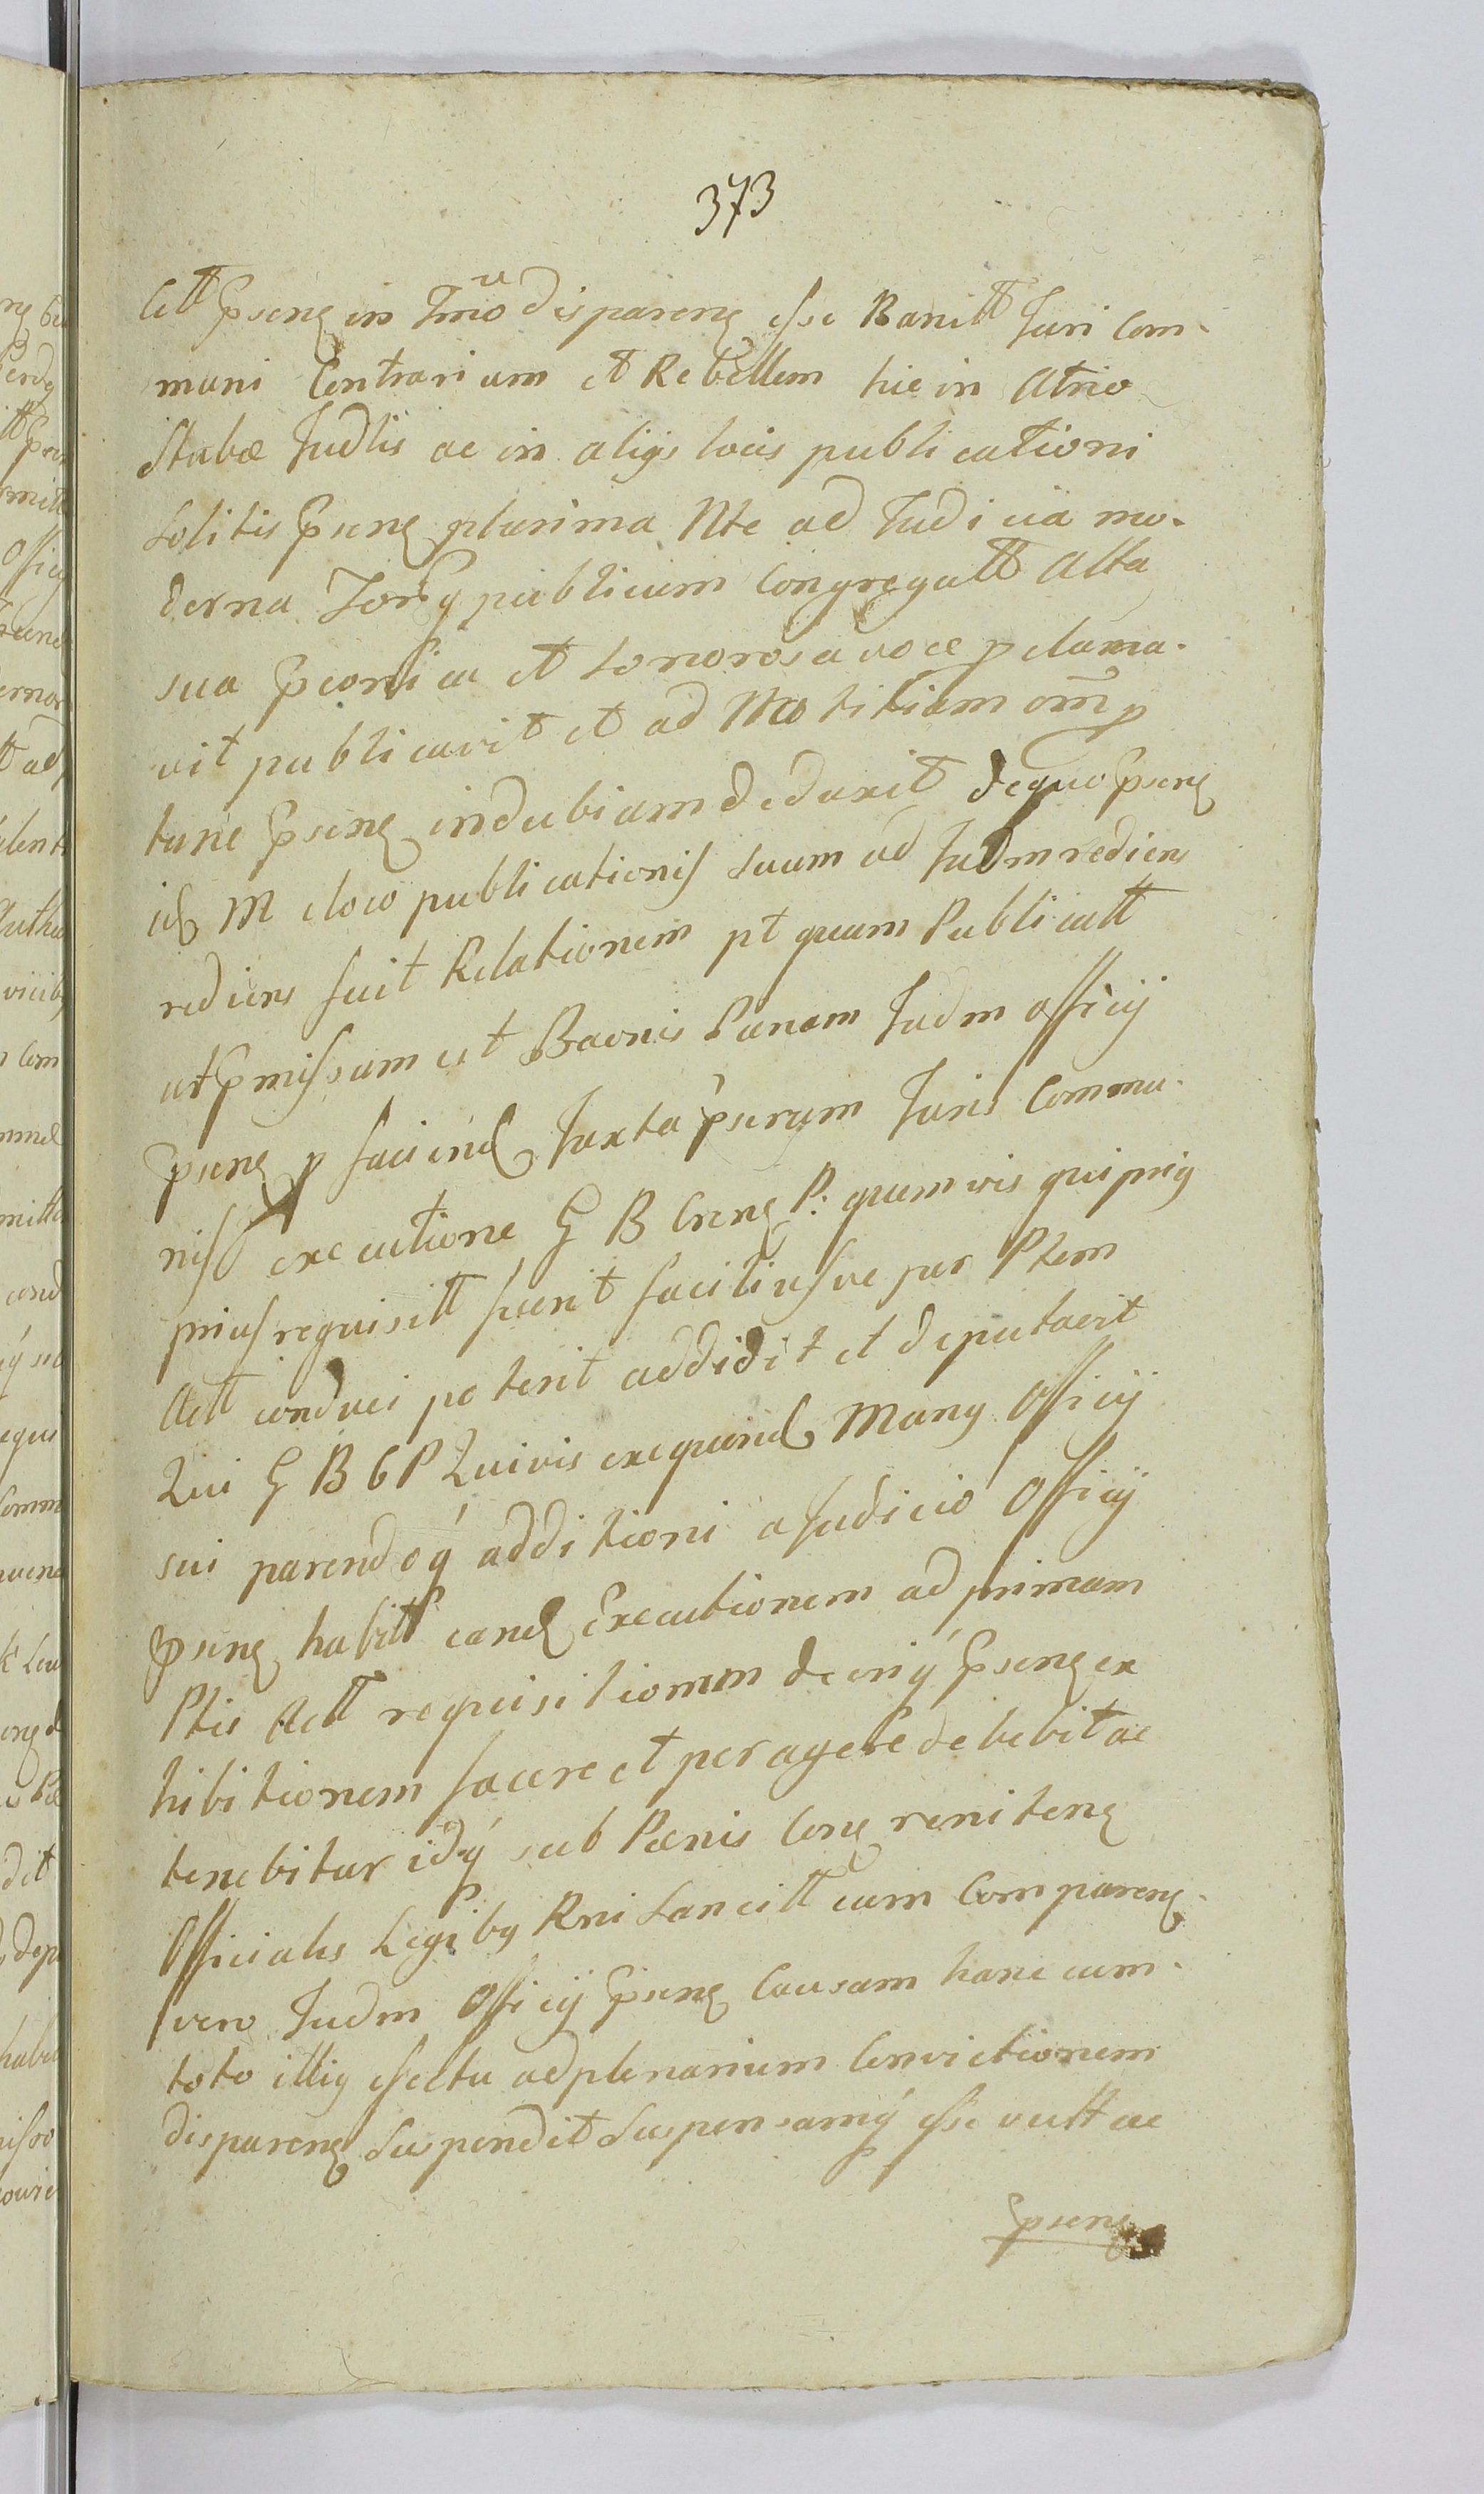 373
Citt Psens in Tmo disparens esse Banitt Juri Com-
muni Contrarium et Rebellem hic in Atrio
Stubæ Judlis ac in aliys locis publicationi
solitis Psens plurima Nte ad Judicia mo-
derna publicum Congregatt Alta
sua Pconica et sonorosa voce pclama-
vit publicavit et ad Notitiam om̃
tunc Psens indubiam deduxit dequo Psens
id M eloco publicationis suum ad Judm rediens
rediens fecit Relationem pt quam Publicatt
ut Pmissum est Baonis Pænam Judm Officij
Psens p faciend Juxta pscrum Juris Commu-
nis executione G B Crens P: quemvis qui priq
prius requisitt fuerit faciliusve per Ptem
Actt conduci poterit addidit et deputavit
Qui G B C P Quivis exequend Munq Officij
sui parendoq additioni a Judicio Officij
Psens habitt eand Executionem ad primam
Ptis Actt requisitionem decriq Psens ex
hibitionem facere et peragere debebit ac
tenebitur idq sub Pænis Con renitens
Officiales Legibq Rni Sancitt cum Comparens
vero Judm Officij Psens Causam hanc cum
toto illiq effectu adplenarium Convictionem
disparens Suspendit Suspensamq esse vult ac
Psens